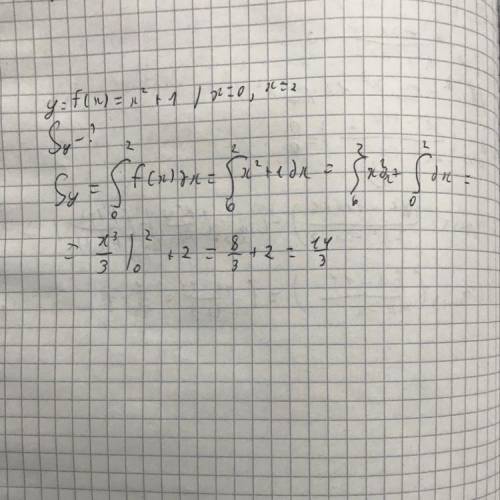 y = f(x) = x² + 1 / x=0, x=2
Sy - ?
Sy = ∫₀² f(x) dx = ∫₀² x² + 1 dx = ∫₀² x² dx + ∫₀² dx =
= x³/3 |₀² + 2 = 8/3 + 2 = 14/3